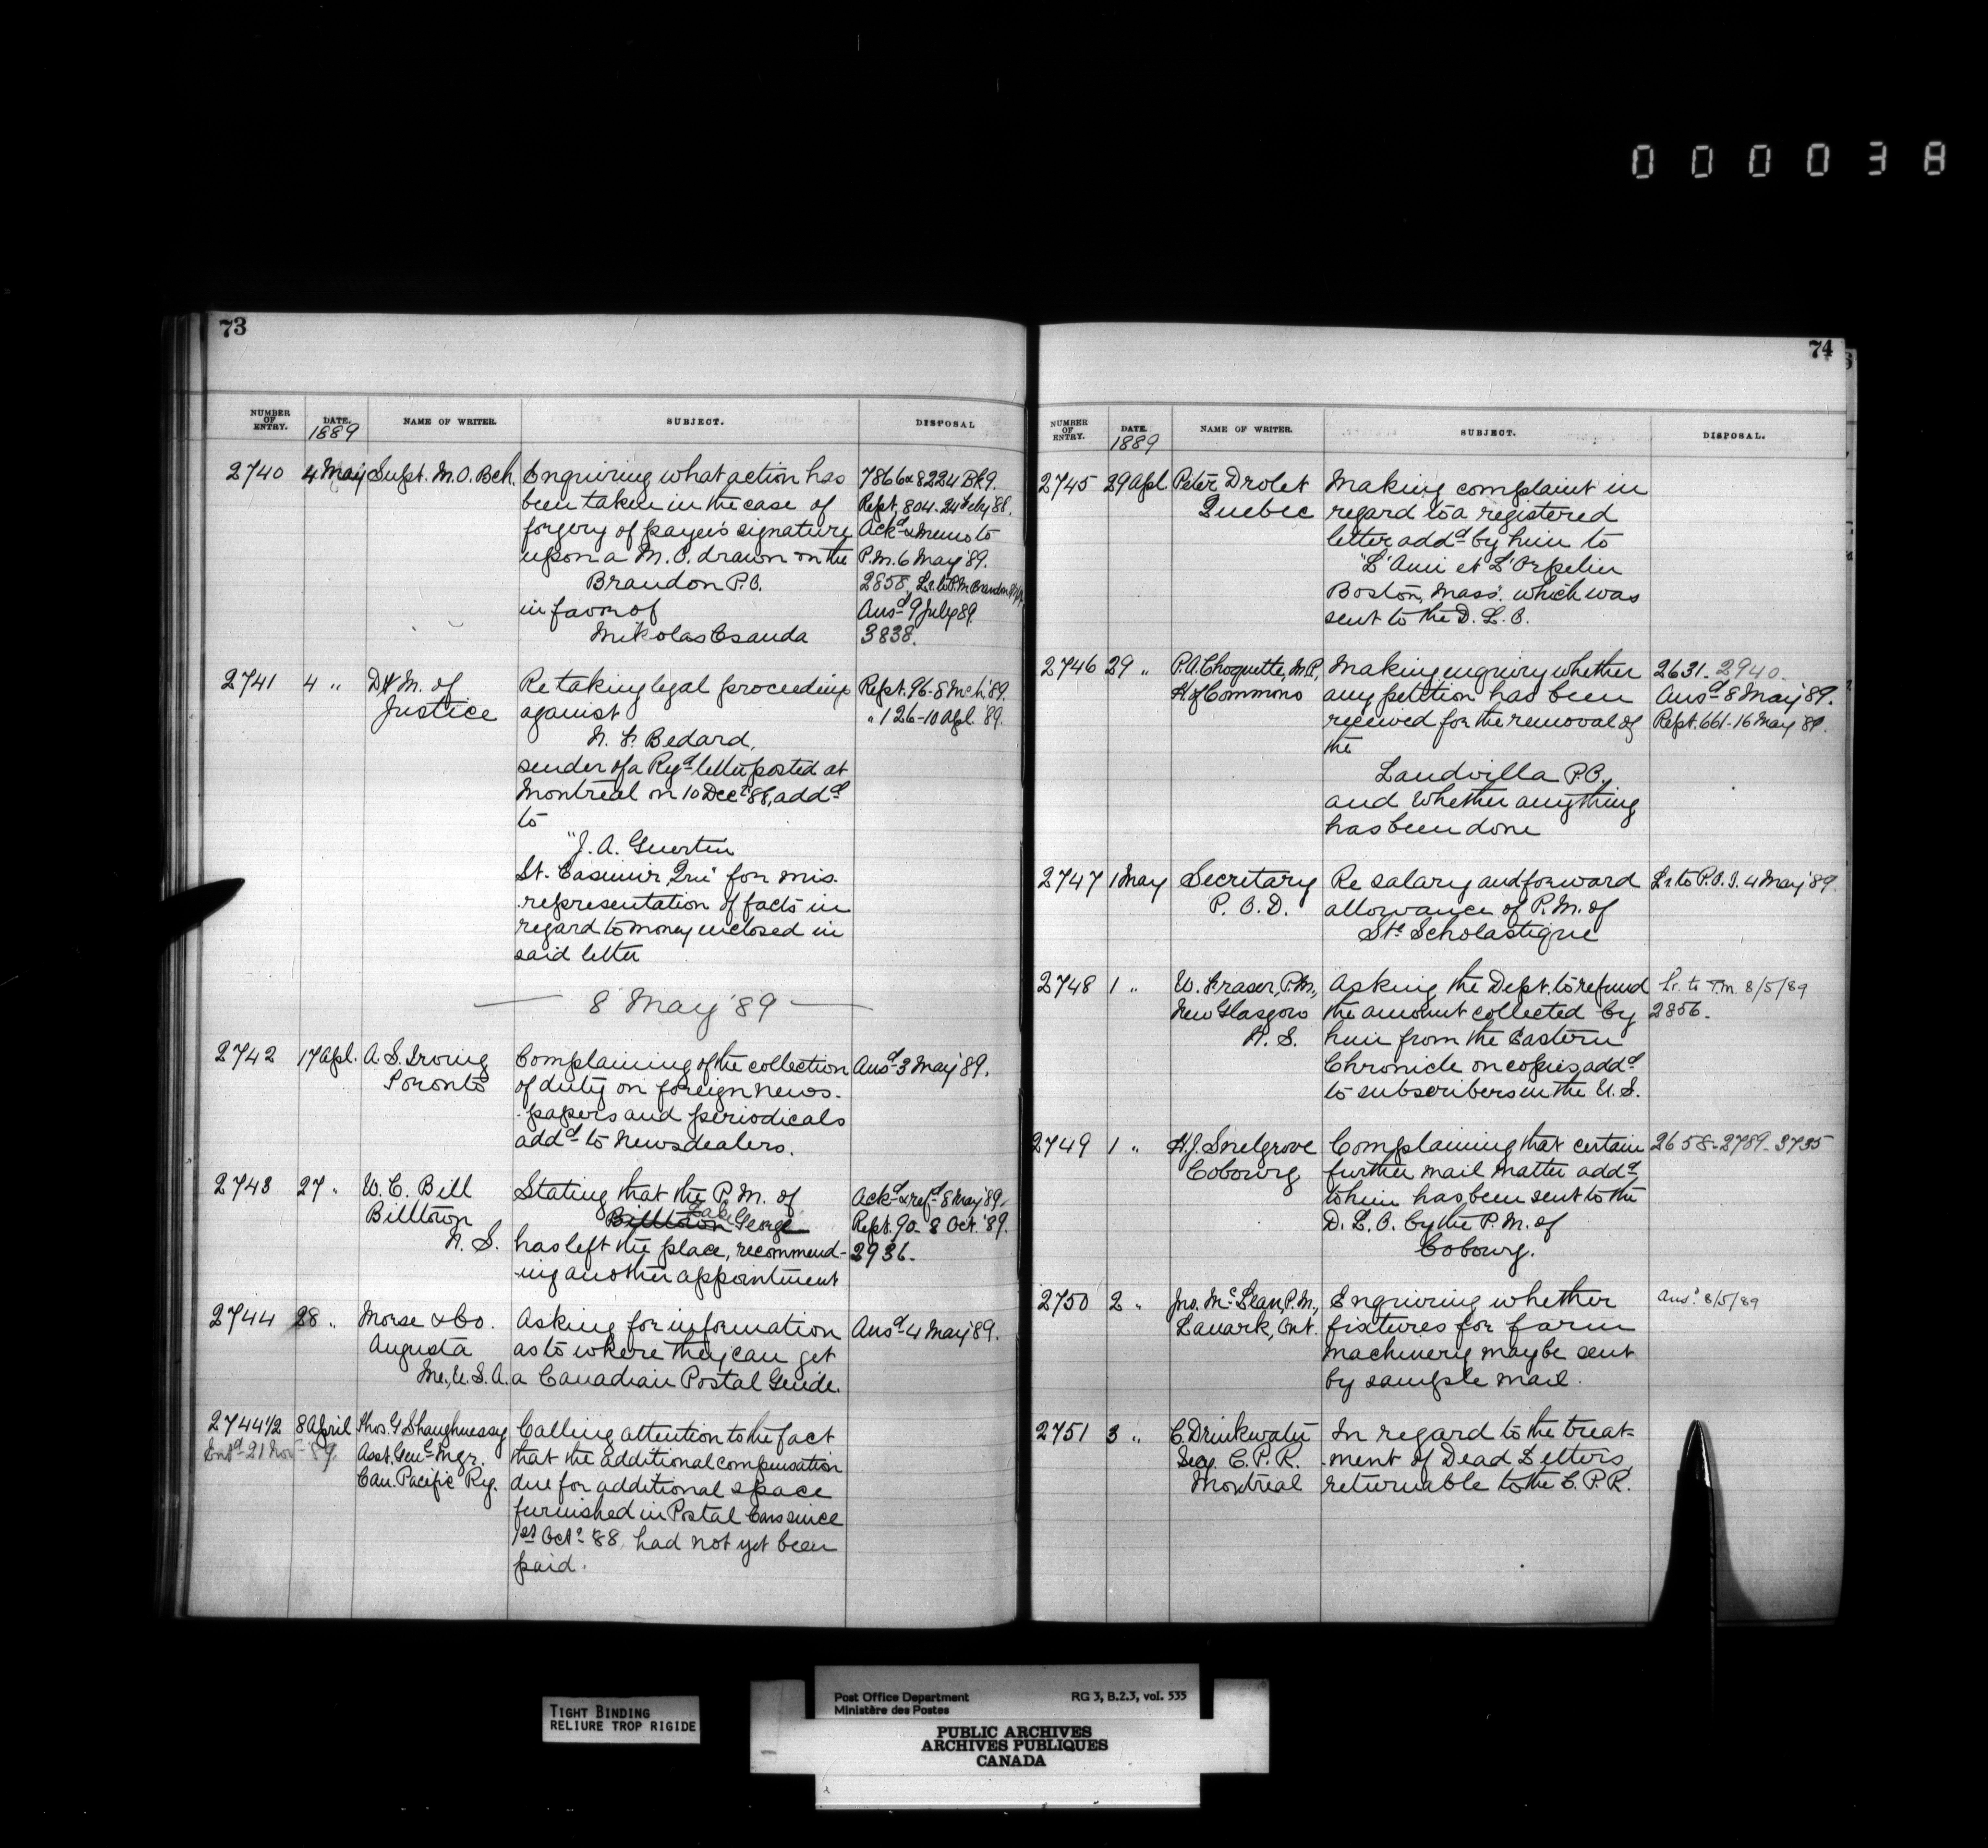 000038
73
NUMBER OF ENTRY. DATE. 1889 NAME OF WRITER. SUBJECT. DISPOSAL
2740 4 May Supt. M.O. Bch. Enquiring what action has 7866 & 8224 Bk 9.
been taken in the case of Rept. 804-24 Feby '88.
forgery of payee's signature Ackd & memo to
upon a M.O. drawn on the P.M. 6 May '89.
Brandon P.O. 2858, Lr. to P.M. Brandon
in favor of Ansd 9 July 89
Mikolas Csanda 3838.
2741 4 " D.M. of Re taking legal proceedings Rept. 96-8 Mch '89.
Justice against " 126-10 Apl. '89.
N. F. Bedard,
sender of a Regd letter posted at
Montreal on 10 Decr '88, addd
to
"J. A. Guertin
St. Casimir, Que" for mis-
-representation of facts in
regard to money enclosed in
said letter
8 May '89
2742 17 Apl. A. S. Irving Complaining of the collection Ansd 3 May '89.
Toronto of duty on foreign news-
-papers and periodicals
addd to newsdealers.
2743 27 " W. C. Bill Stating that the P.M. of Ackd & refd 8 May '89
Billtown Billtown Lake George Rept. 90-8 Oct. '89.
N. S. has left the place, recommend- 2936.
-ing another appointment
2744 28 " Morse & Co. Asking for information Ansd 4 May '89.
Augusta as to where they can get
Me., U.S.A. a Canadian Postal Guide.
2744 1/2 8 April Thos. G Shaughnessy Calling attention to the fact
Entd 21 Nov - '89. Asst. Genl Mgr. that the additional compensation
Can. Pacific Ry. due for additional space
furnished in Postal Cars since
1st Octr '88 had not yet been
paid.
74
NUMBER OF ENTRY. DATE. 1889 NAME OF WRITER. SUBJECT. DISPOSAL.
2745 29 Apl Peter Drolet Making complaint in
Quebec regard to a registered
letter addd by him to
"L'Ami et L'Orpelin
Boston, Mass. which was
sent to the D. L. O.
2746 29 " P.A. Choquette, M.P., Making enquiry whether 2631. 2940.
H. of Commons any petition has been Ansd 8 May '89.
received for the removal of Rept. 661-16 May '89.
the
Landvilla P.O.,
and whether anything
has been done
2747 1 May Secretary Re salary and forward Lr. to P.O.I. 4 May '89.
P. O. D. allowance of P.M. of
Ste Scholastique
2748 1 " W. Fraser, P.M., Asking the Dept. to refund Lr. to P.M. 8/5/89
New Glasgow the amount collected by 2856.
N. S. him from the Eastern
Chronicle on copies addd
to subscribers in the U. S.
2749 1 " H.J. Snelgrove Complaining that certain 2658-2789-3735
Cobourg further mail matter addd
to him has been sent to the
D. L. O. by the P.M. of
Cobourg.
2750 2 " Jno. McLean, P.M., Enquiring whether Ansd 8/5/89
Lanark, Ont. fixtures for farm
machinery may be sent
by sample mail.
2751 3 " C. Drinkwater In regard to the treat-
Secy. C. P. R. -ment of Dead Letters
Montreal returnable to the C. P. R.
TIGHT BINDING
RELIURE TROP RIGIDE
Post Office Department RG 3, B.2.3, vol. 535
Ministère des Postes
PUBLIC ARCHIVES
ARCHIVES PUBLIQUES
CANADA